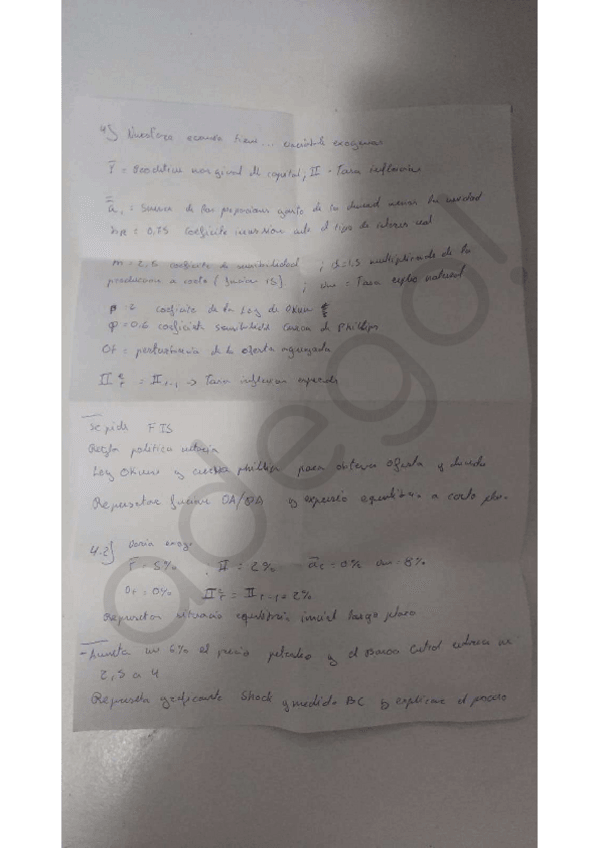 4) Nuestra economía tiene... variable exogenas
r̄ = Rendition marginal de capital; II - Tasa inflacion
ā, = Suma de las proporciones gasto de la demand menos la unidad
= 0,75 Coeficiente inversion ante el tipo de interes real
m = 2,5 coeficiente de sensibilidad ; = 1,5 multiplicador de la
produccion a corto (funcion IS) ; un = Tasa natural
β = 2 coeficiente de la Ley de OKun
φ = 0,6 coeficiente sensibilidad curva de Phillips
Ot = perturbacion de la oferta agregada
II = II t-1 → Tasa inflacion esperada
Se pide FIS
Regla politica
Ley OKun y curva phillips para obtener oferta y
Representar funcion DA/OA y expresió equilibrio a corto plazo
4.2}
r̄ = 5% , II = 2% āc = 0% un = 8%
Ot = 0% II = II t-1 = 2%
Representar situacio equilibrio inicial largo plazo
- Aumenta un 6% el precio petroleo y el Banco Central
2,5 a 4
Representa graficamente Shock y medida BC y explicar el proceso
adego!